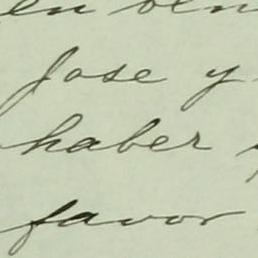 en
Jose y
haber
favor